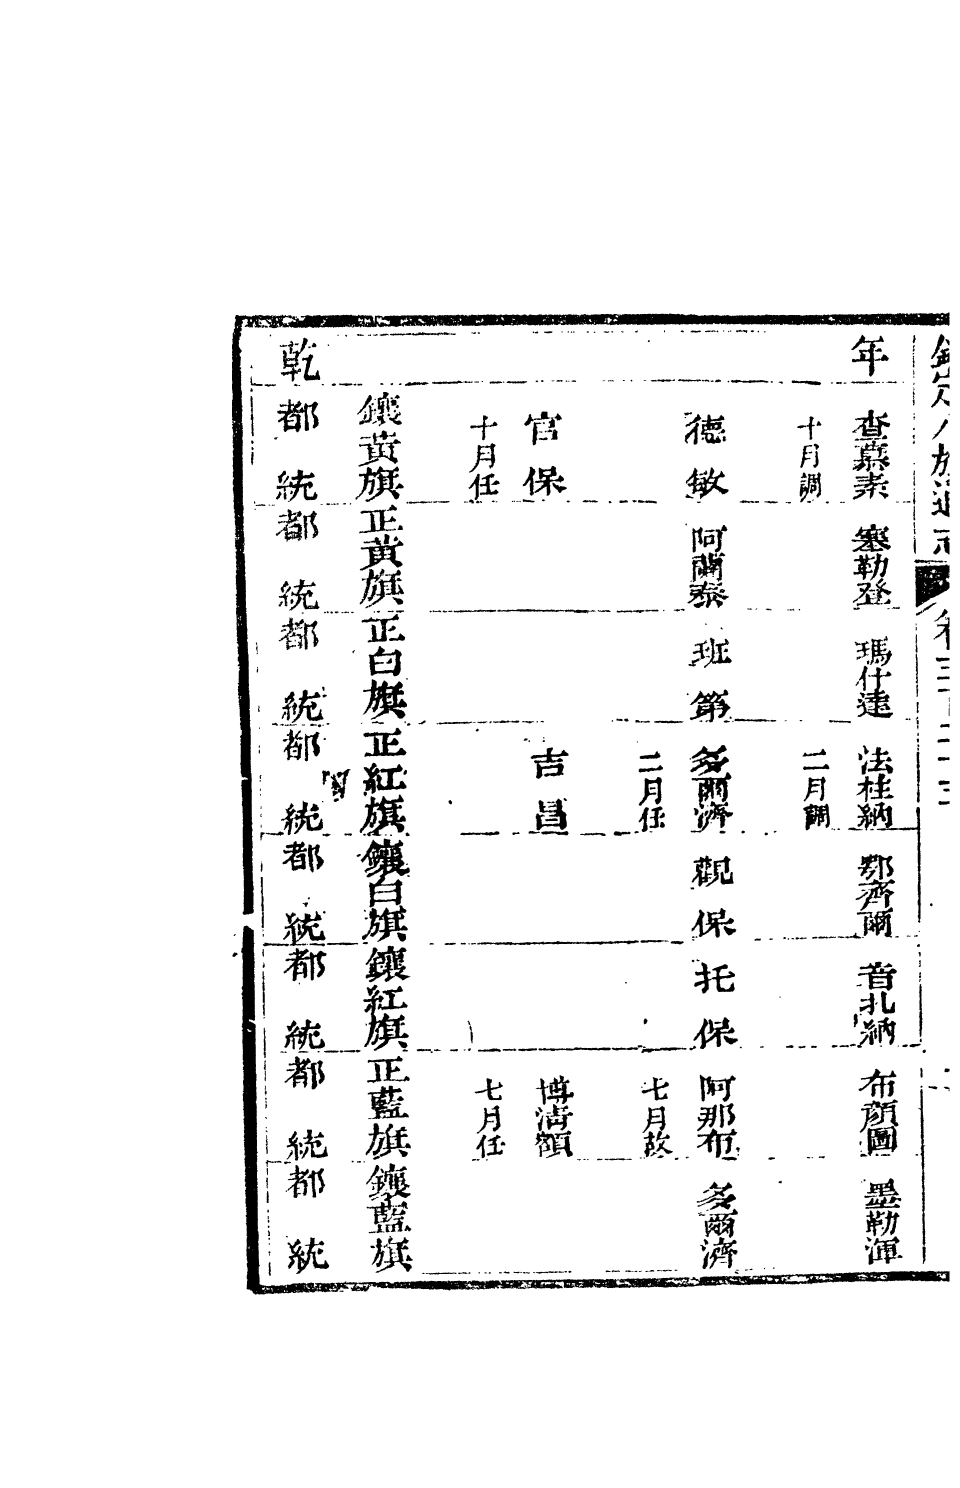 欽定八旗通志 卷三百二十三
年 查慕素 塞勒登 瑪什達 法桂納 鄂齊爾 音扎納 布顏圖 墨勒渾
十月調 二月調
德敏 阿蘭泰 班第 多爾濟 觀保 托保 阿那布 多爾濟
二月任 七月故
官保 吉昌 博清額
十月任 七月任
鑲黃旗 正黃旗 正白旗 正紅旗 鑲白旗 鑲紅旗 正藍旗 鑲藍旗
乾 都統 都統 都統 都統 都統 都統 都統 都統